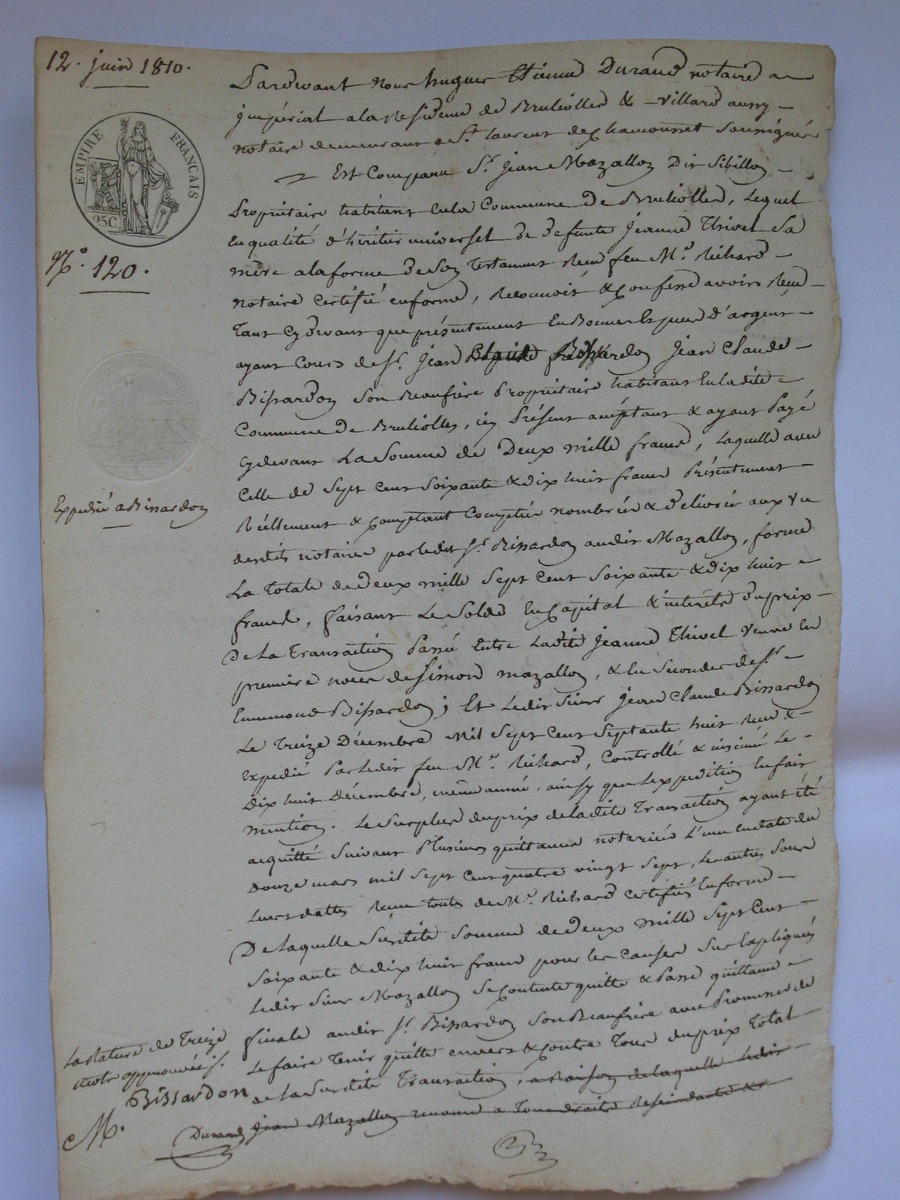 12. juin 1810.
EMPIRE FRANÇAIS
25C.
N.° 120.
Expedié a Bissardon
Pardevant Nous hugues Etienne Durand notaire
jmpérial a la residence de Brulliolles & Villard aussy
notaire demeurant a St. laurent de Chamousset soussignés
Est Comparu Sr. Jean Mazallon dit Sibillon
Propriétaire habitant en la Commune de Brulliolles, Lequel
En qualité d'héritier universel de defunte Jeanne Thivel Sa
mère a la forme de Son Testament Reçu feu Me. Richard
notaire certifié en forme, Reconnoit & Confesse avoir Reçu
tant cydevant que présentement En Bonnes Especes d'argent
ayant Cours de Sr. Jean Jean Claude
Bissardon Son Beaufrère Propriétaire habitant En ladite
Commune de Brulliolles, icy Présent acceptant & ayant Payé
cydevant La Somme de Deux mille francs, Laquelle avec
Celle de Sept Cent Soixante & dix huit francs Présentement
Réellement & Comptant Comptée nombrée & délivrée aux vu
desdits notaires par ledit Sr. Bissardon audit Mazallon, forme
La Totale de deux mille Sept Cent Soixante & dix huit
francs, faisant Le Solde En Capital & intérêts du prix
De La Transaction Passée Entre Ladite Jeanne Thivel veuve En
première noces de Simon Mazallon, & En Secondes de Sr.
Ennemond Bissardon; Et Ledit Sieur Jean Claude Bissardon
Le Treize Décembre Mil Sept Cent Septante huit Reçu &
Expedié Par Ledit feu Me. Richard, Controllé & insinué Le
Dix huit Décembre, même année, ainsy que L'expedition En fait
mention. Le Surplus du prix de ladite Transaction ayant été
acquitté Suivant Plusieurs quittances notariées L'une en date du
Douze mars mil Sept Cent quatre vingt Sept, Les autres Sous
Leurs dattes Reçue toutes de Me. Richard Certifiés En forme
De laquelle Susdite Somme de deux mille Sept Cent
Soixante & dix huit francs pour les Causes Sus Expliqués
Ledit Sieur Mazallon Se Contente quitte & Passe quittance
finale audit Sr. Bissardon Son Beaufrère avec Promesse de
Le faire Tenir quitte envers & Contre Tous du prix Total
de La Susdite Transaction, a Raison de laquelle Ledit
Jean Mazallon renonce a Tous droits Rescindants &
La Rature de Treize
mots approuvée
Bissardon
M.
Durand